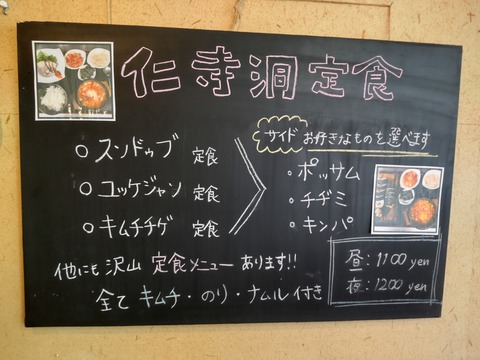 仁寺洞定食
○スンドゥブ 定食
○ユッケジャン 定食
○キムチチゲ 定食
サイド お好きなものを選べます
・ポッサム
・チヂミ
・キンパ
他にも沢山 定食メニューあります!!
全て キムチ・のり・ナムル付き
昼:1100yen
夜:1200yen